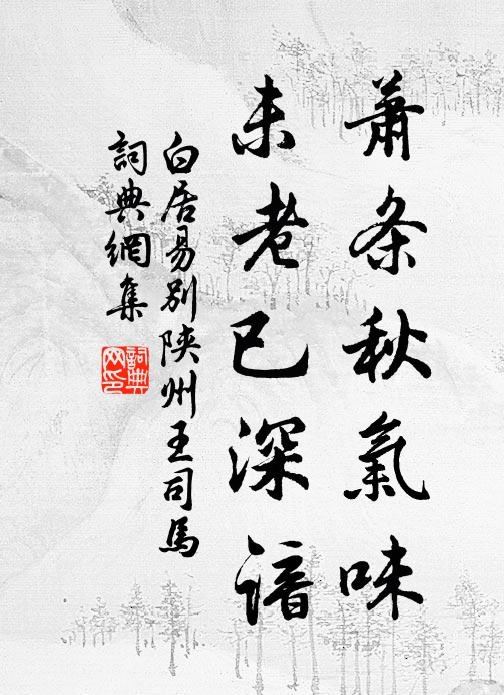 蕭条秋氣味
未老已深谙
白居易別陝州王司馬
詞典網集
詞典
网印